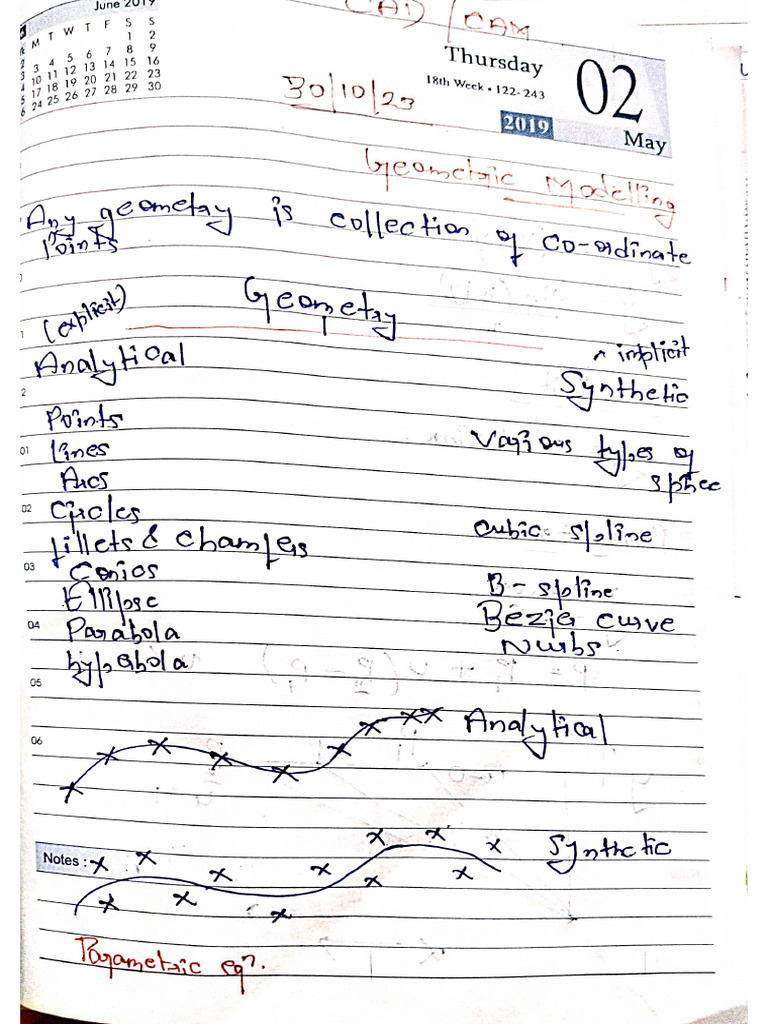 June 2019
M T W T F S S
1 2
3 4 5 6 7 8 9
10 11 12 13 14 15 16
17 18 19 20 21 22 23
24 25 26 27 28 29 30
CAD / CAM
Thursday
18th Week • 122-243
02
2019
May
30/10/23
Geometric Modelling
Any geometry is collection of co-ordinate
points
(explicit)
Geometry
Analytical
implicit
Synthetic
Points
01
Lines
Various types of
spline
Arcs
02
Circles
cubic spline
fillets & chamfers
03
Conics
B-spline
Ellipse
Bezier curve
04
Parabola
Nurbs
hyperbola
05
Analytical
06
Synthetic
Notes :
Parametric eqn.